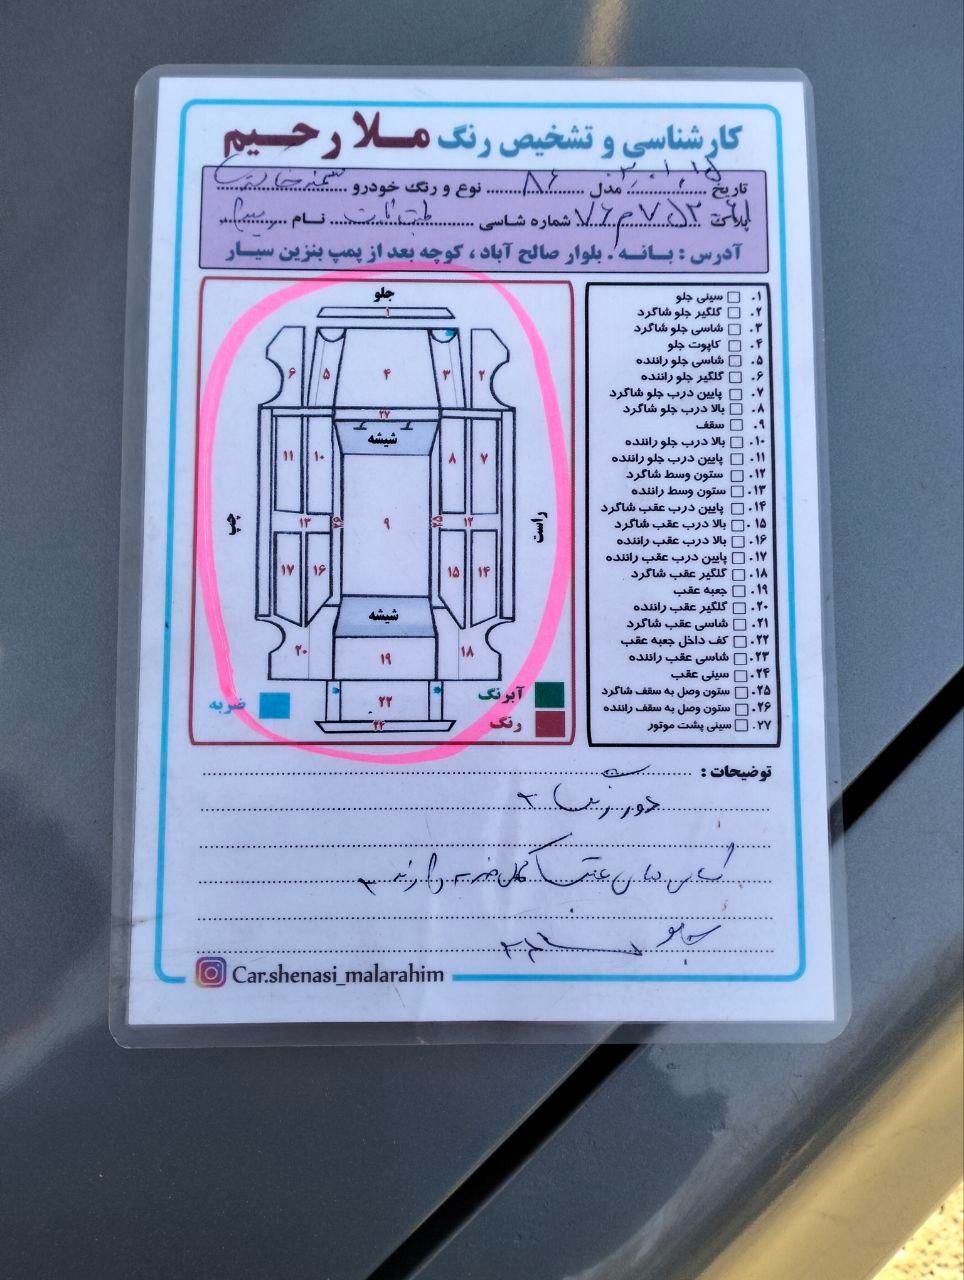 کارشناسی و تشخیص رنگ ملا رحیم
تاریخ مدل ۸۶ نوع و رنگ خودرو
پلاک شماره شاسی طبق کارت نام
آدرس : بانه . بلوار صالح آباد ، کوچه بعد از پمپ بنزین سیار
جلو
۱
۶ ۵ ۴ ۳ ۲
۲۷
شیشه
۱۱ ۱۰ ۸ ۷
چپ
۱۳ ۹ ۱۲
راست
۱۷ ۱۶ ۱۵ ۱۴
شیشه
۲۰ ۱۹ ۱۸
۲۲
۲۴
آبرنگ
رنگ
ضربه
۱. سینی جلو
۲. گلگیر جلو شاگرد
۳. شاسی جلو شاگرد
۴. کاپوت جلو
۵. شاسی جلو راننده
۶. گلگیر جلو راننده
۷. پایین درب جلو شاگرد
۸. بالا درب جلو شاگرد
۹. سقف
۱۰. بالا درب جلو راننده
۱۱. پایین درب جلو راننده
۱۲. ستون وسط شاگرد
۱۳. ستون وسط راننده
۱۴. پایین درب عقب شاگرد
۱۵. بالا درب عقب شاگرد
۱۶. بالا درب عقب راننده
۱۷. پایین درب عقب راننده
۱۸. گلگیر عقب شاگرد
۱۹. جعبه عقب
۲۰. گلگیر عقب راننده
۲۱. شاسی عقب شاگرد
۲۲. کف داخل جعبه عقب
۲۳. شاسی عقب راننده
۲۴. سینی عقب
۲۵. ستون وصل به سقف شاگرد
۲۶. ستون وصل به سقف راننده
۲۷. سینی پشت موتور
توضیحات :
دور رنگ
ضربه دارند
Car.shenasi_malarahim